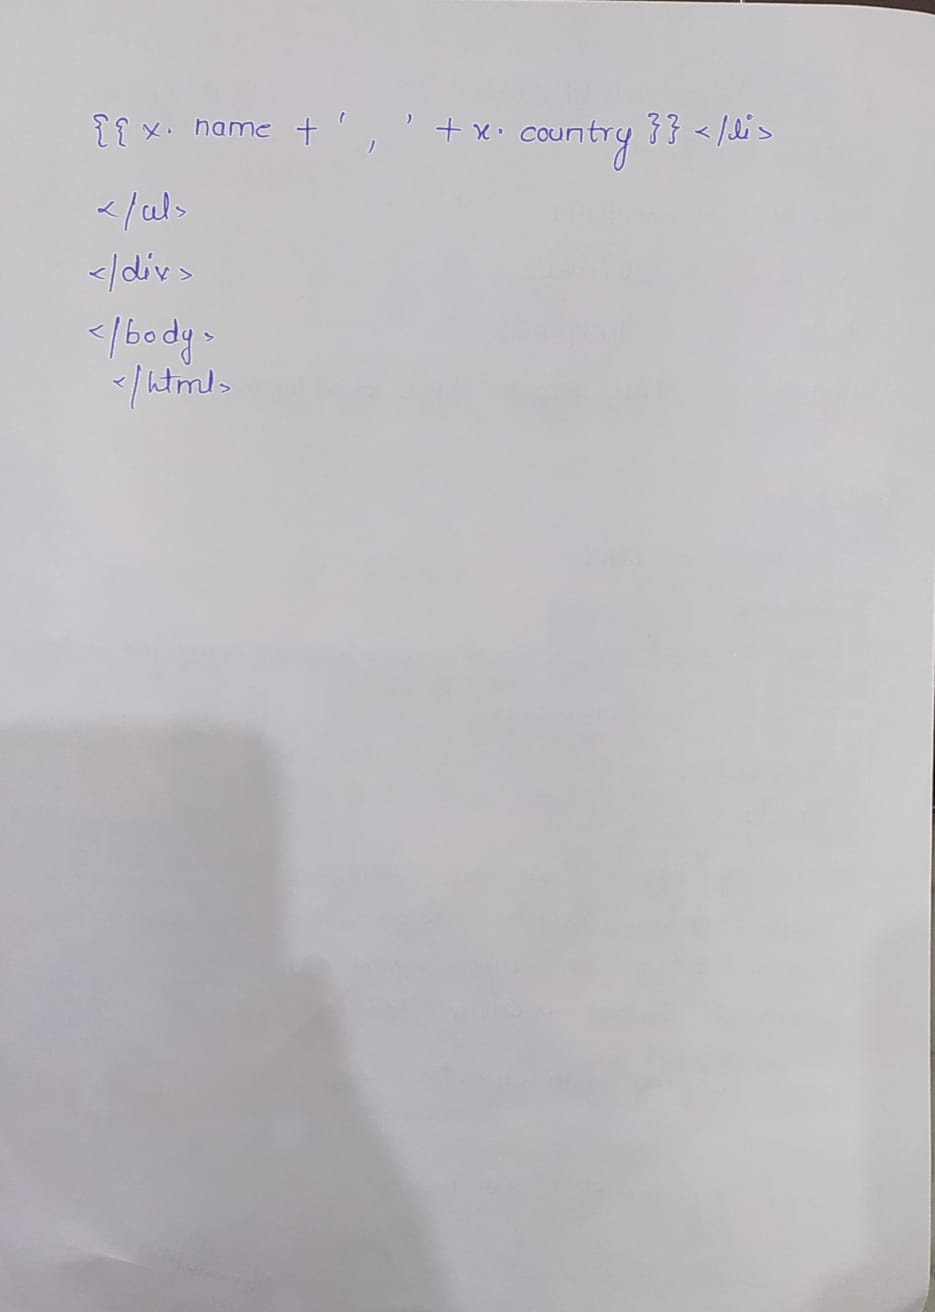 {{ x. name + ' , ' + x. country }} </li>
</ul>
</div>
</body>
</html>